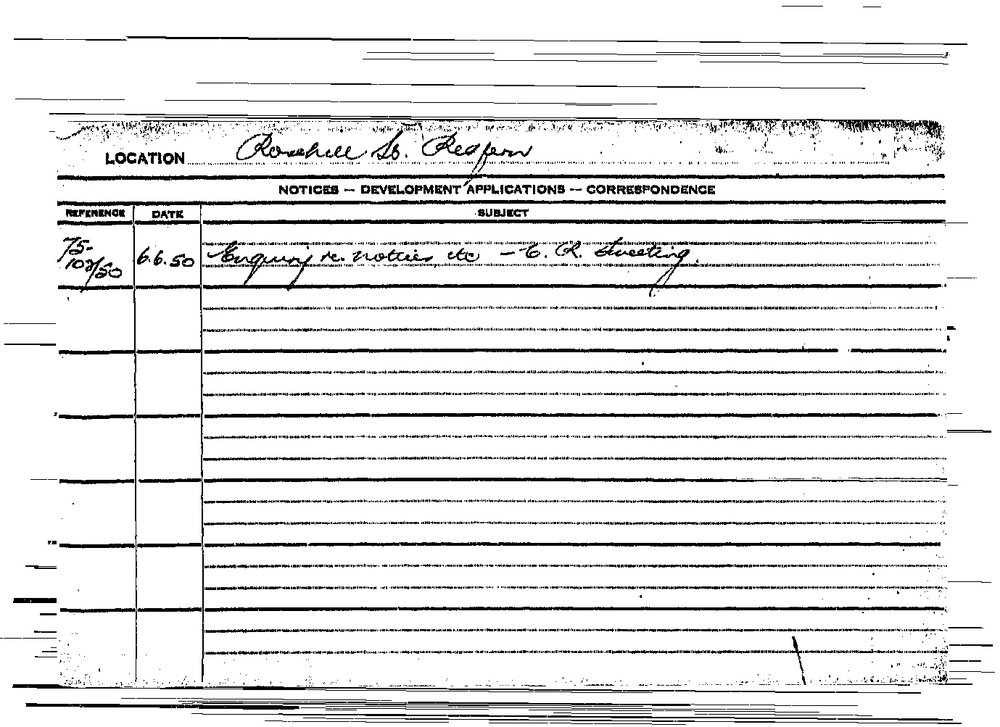 LOCATION Rosehill St. Redfern
NOTICES — DEVELOPMENT APPLICATIONS — CORRESPONDENCE
REFERENCE DATE SUBJECT
75-
102/50 6.6.50 Enquiry re. notices etc — C. R. Sweeting.